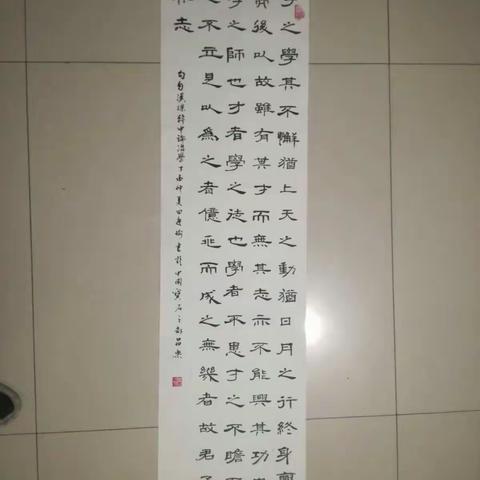 之學其不懈猶上天之動猶日月之行終身亹
後以故雖有其才而無其志亦不能興其功
之師也才者學之徒也學者不思才之不贍
之不立是以為之者億兆而成之無幾者故君子
志
句自漢徐幹中論治學丁酉仲夏田書於中國寶石之都昌樂